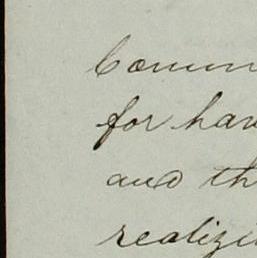 Comm
for hav
and th
realizi